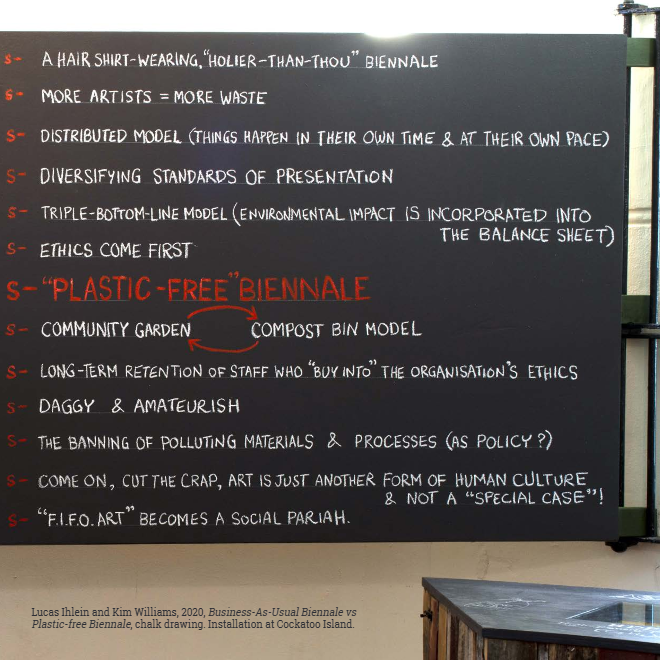 S- A HAIR SHIRT-WEARING, "HOLIER-THAN-THOU" BIENNALE
S- MORE ARTISTS = MORE WASTE
S- DISTRIBUTED MODEL (THINGS HAPPEN IN THEIR OWN TIME & AT THEIR OWN PACE)
S- DIVERSIFYING STANDARDS OF PRESENTATION
S- TRIPLE-BOTTOM-LINE MODEL (ENVIRONMENTAL IMPACT IS INCORPORATED INTO
THE BALANCE SHEET)
S- ETHICS COME FIRST
S- "PLASTIC-FREE" BIENNALE
S- COMMUNITY GARDEN COMPOST BIN MODEL
S- LONG-TERM RETENTION OF STAFF WHO "BUY INTO" THE ORGANISATION'S ETHICS
S- DAGGY & AMATEURISH
S- THE BANNING OF POLLUTING MATERIALS & PROCESSES (AS POLICY?)
S- COME ON, CUT THE CRAP, ART IS JUST ANOTHER FORM OF HUMAN CULTURE
& NOT A "SPECIAL CASE"!
S- "F.I.F.O. ART" BECOMES A SOCIAL PARIAH.
Lucas Ihlein and Kim Williams, 2020, Business-As-Usual Biennale vs
Plastic-free Biennale, chalk drawing. Installation at Cockatoo Island.